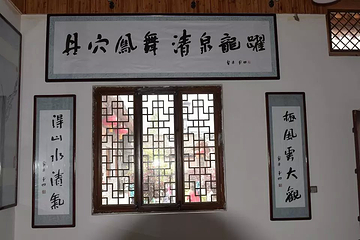 丹穴鳳舞清泉龍躍
得山水清氣
風雲大觀